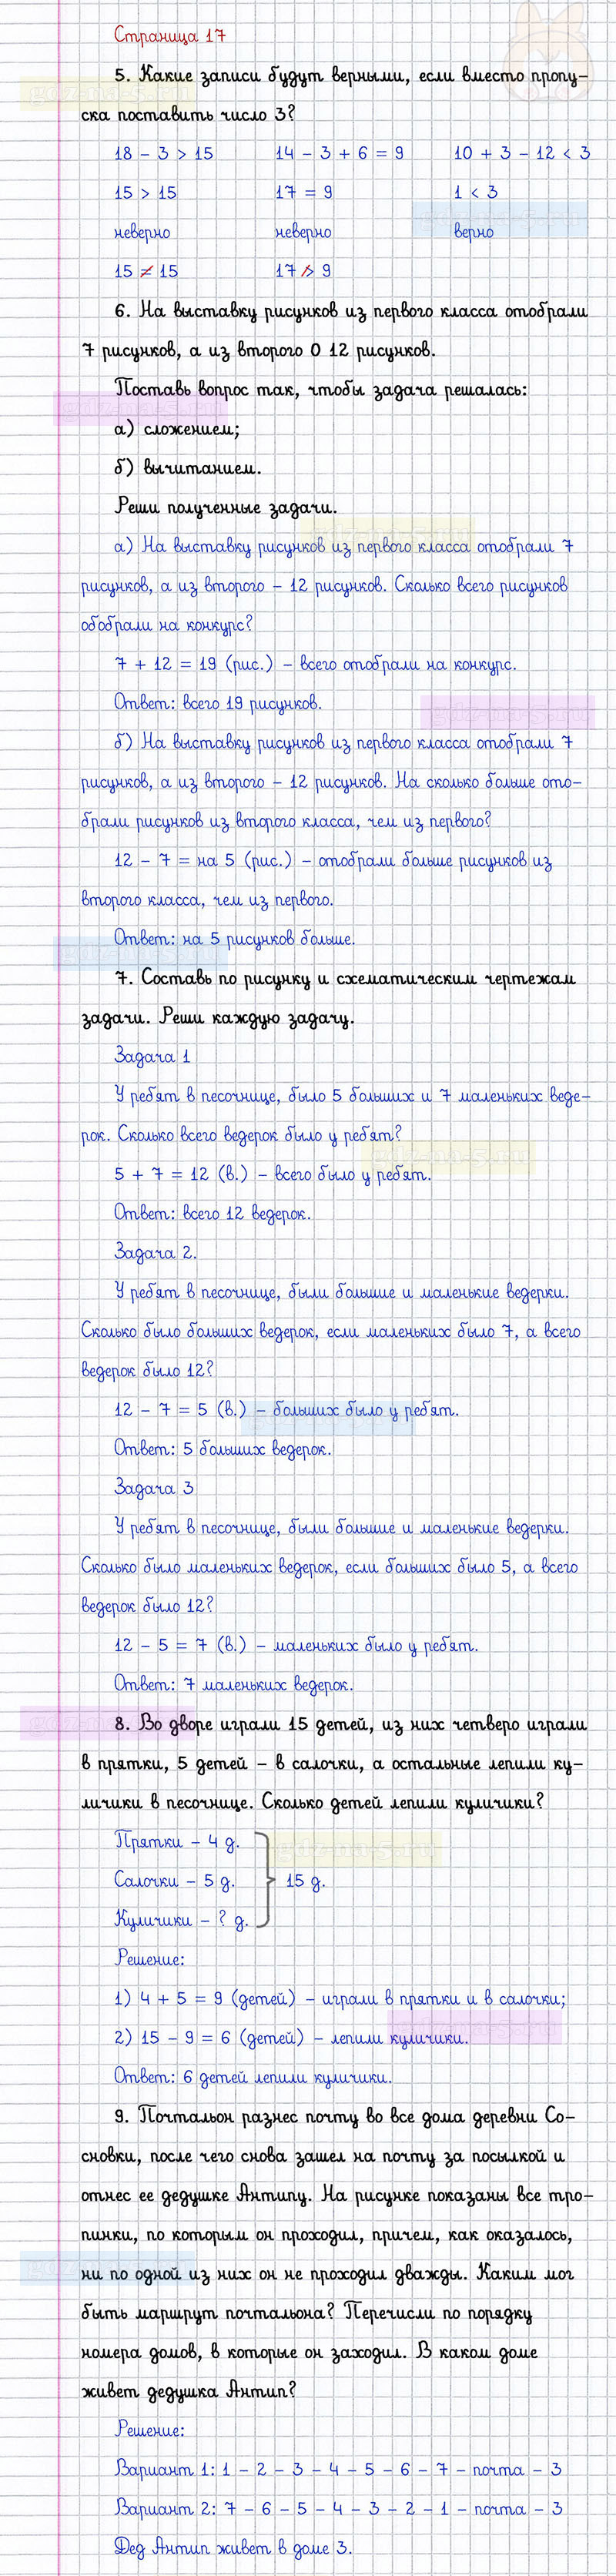 Страница 17
5. Какие записи будут верными, если вместо пропу-
ска поставить число 3?
18 - 3 > 15 14 - 3 + 6 = 9 10 + 3 - 12 < 3
15 > 15 17 = 9 1 < 3
неверно неверно верно
15 ≠ 15 17 > 9
6. На выставку рисунков из первого класса отобрали
7 рисунков, а из второго 0 12 рисунков.
Поставь вопрос так, чтобы задача решалась:
а) сложением;
б) вычитанием.
Реши полученные задачи.
а) На выставку рисунков из первого класса отобрали 7
рисунков, а из второго – 12 рисунков. Сколько всего рисунков
обобрали на конкурс?
7 + 12 = 19 (рис.) – всего отобрали на конкурс.
Ответ: всего 19 рисунков.
б) На выставку рисунков из первого класса отобрали 7
рисунков, а из второго – 12 рисунков. На сколько больше ото-
брали рисунков из второго класса, чем из первого?
12 – 7 = на 5 (рис.) – отобрали больше рисунков из
второго класса, чем из первого.
Ответ: на 5 рисунков больше.
7. Составь по рисунку и схематическим чертежам
задачи. Реши каждую задачу.
Задача 1
У ребят в песочнице, было 5 больших и 7 маленьких веде-
рок. Сколько всего ведерок было у ребят?
5 + 7 = 12 (в.) – всего было у ребят.
Ответ: всего 12 ведерок.
Задача 2.
У ребят в песочнице, были большие и маленькие ведерки.
Сколько было больших ведерок, если маленьких было 7, а всего
ведерок было 12?
12 – 7 = 5 (в.) – больших было у ребят.
Ответ: 5 больших ведерок.
Задача 3
У ребят в песочнице, были большие и маленькие ведерки.
Сколько было маленьких ведерок, если больших было 5, а всего
ведерок было 12?
12 – 5 = 7 (в.) – маленьких было у ребят.
Ответ: 7 маленьких ведерок.
8. Во дворе играли 15 детей, из них четверо играли
в прятки, 5 детей – в салочки, а остальные лепили ку-
личики в песочнице. Сколько детей лепили куличики?
Прятки – 4 д.
Салочки – 5 д. 15 д.
Куличики – ? д.
Решение:
1) 4 + 5 = 9 (детей) – играли в прятки и в салочки;
2) 15 – 9 = 6 (детей) – лепили куличики.
Ответ: 6 детей лепили куличики.
9. Почтальон разнес почту во все дома деревни Со-
сновки, после чего снова зашел на почту за посылкой и
отнес ее дедушке Антипу. На рисунке показаны все тро-
пинки, по которым он проходил, причем, как оказалось,
ни по одной из них он не проходил дважды. Каким мог
быть маршрут почтальона? Перечисли по порядку
номера домов, в которые он заходил. В каком доме
живет дедушка Антип?
Решение:
Вариант 1: 1 – 2 – 3 – 4 – 5 – 6 – 7 – почта – 3
Вариант 2: 7 – 6 – 5 – 4 – 3 – 2 – 1 – почта – 3
Дед Антип живет в доме 3.